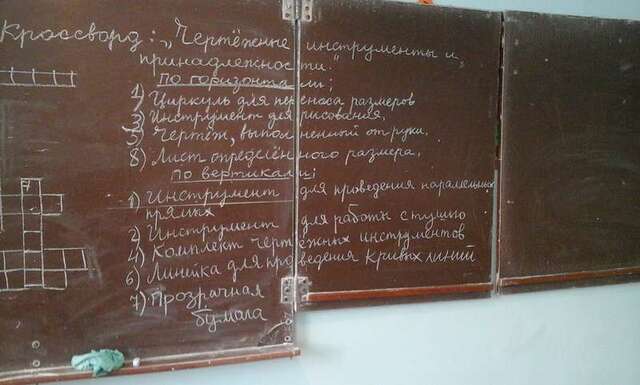 Кроссворд: „Чертёжные инструменты и
принадлежности."
По горизонтали;
1) Циркуль для переноса размеров
3) Инструмент для рисования.
5) Чертёж, выполненный от руки.
8) Лист определённого размера.
по вертикали:
1) Инструмент для проведения параллельных
прямых
2) Инструмент для работы с тушью
4) Комплект чертёжных инструментов
6) Линейка для проведения кривых линий
7) Прозрачная
бумага
7